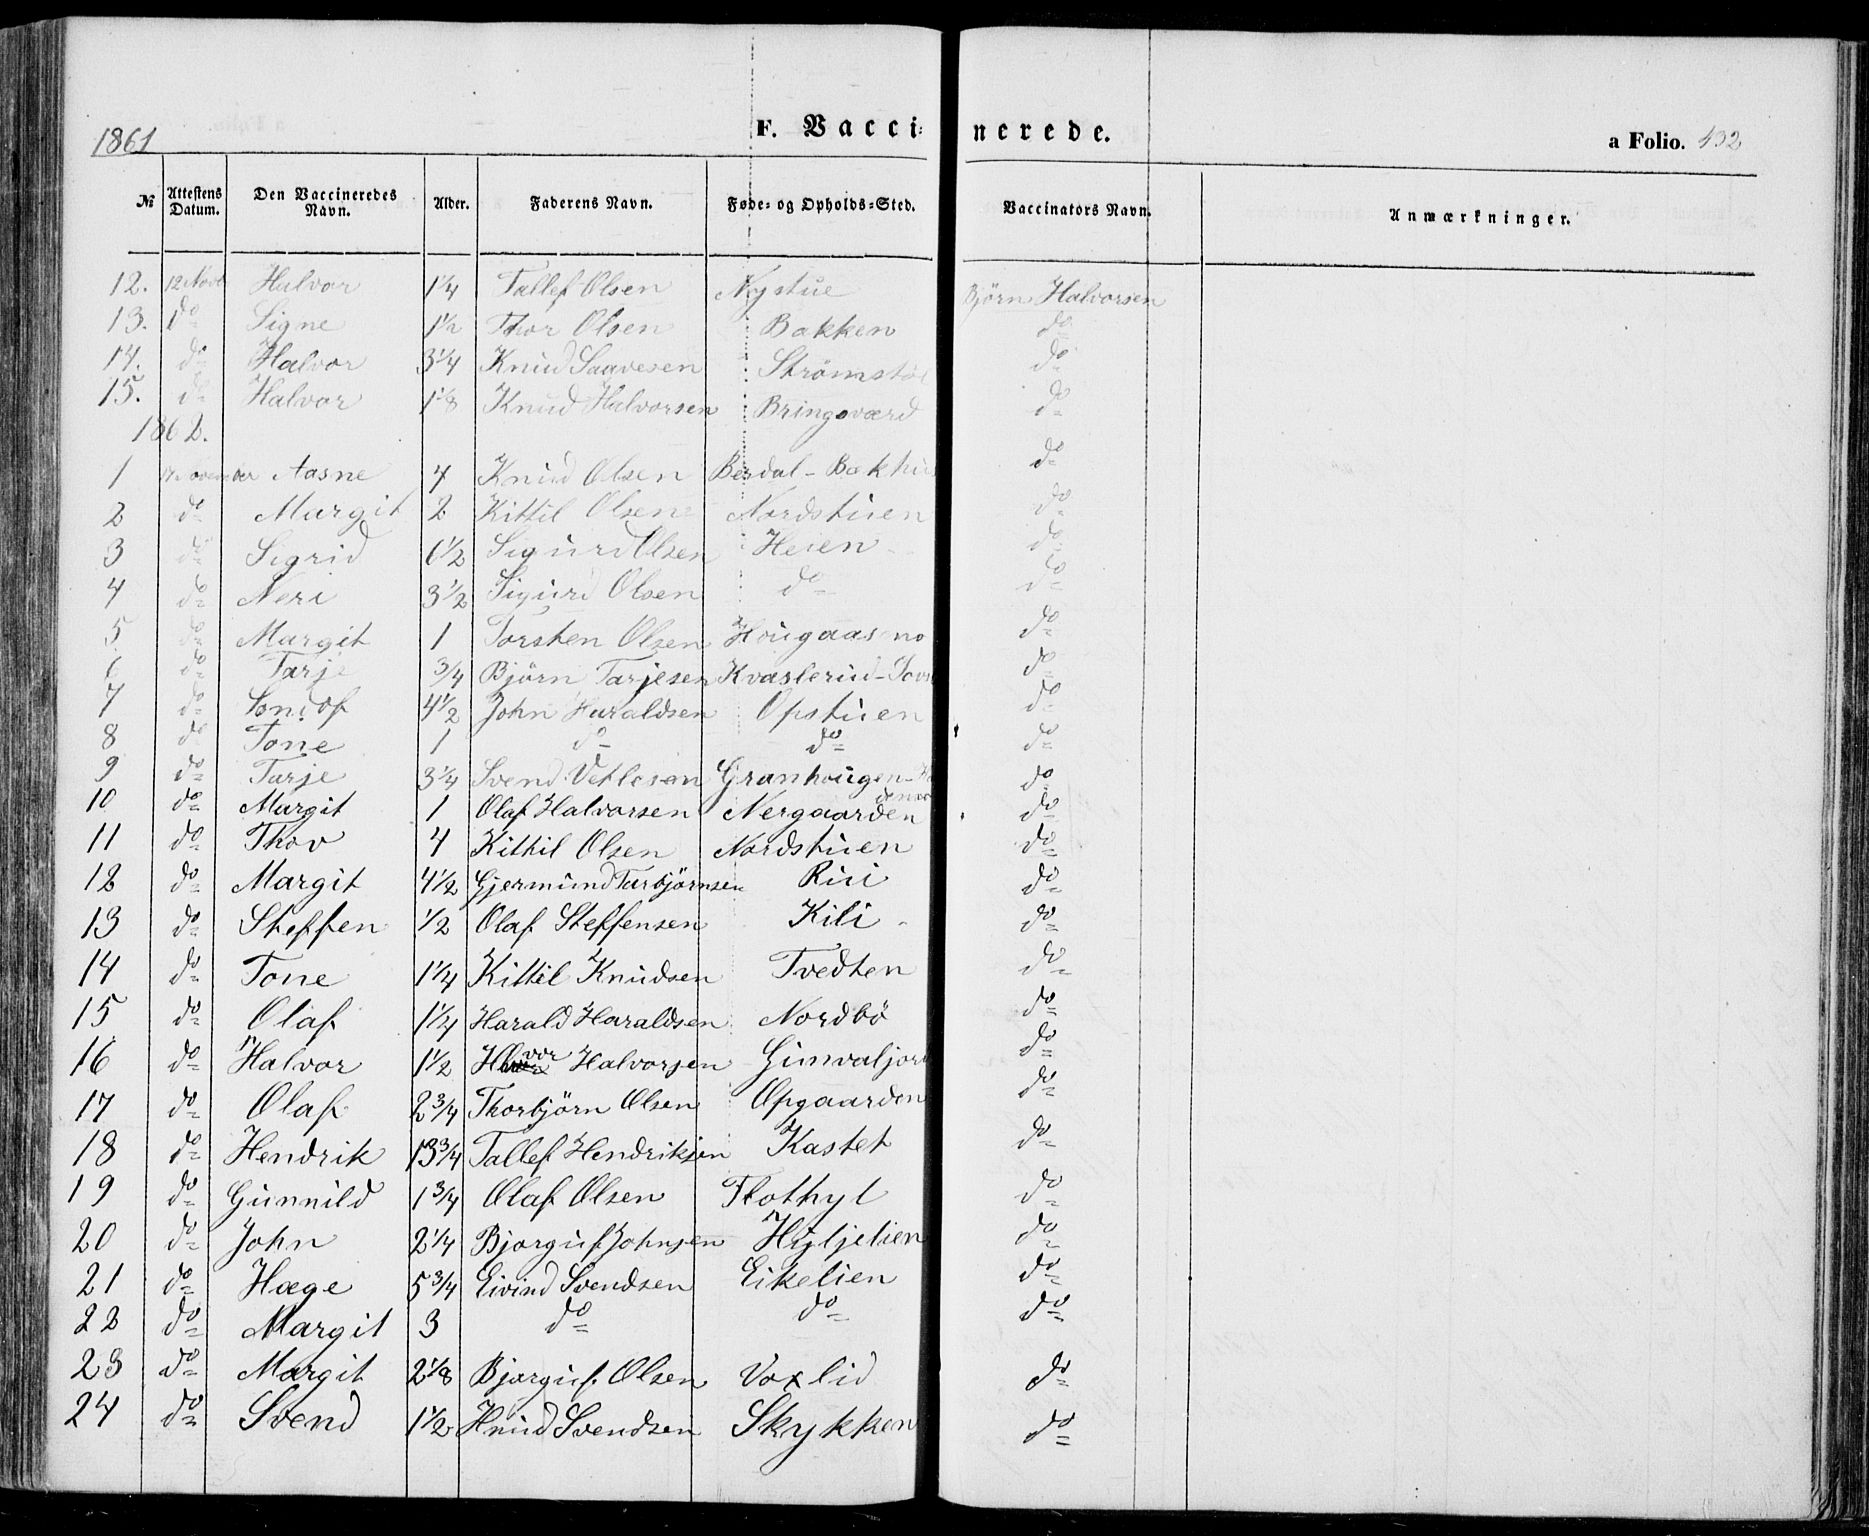 1861 F. Vaccinerede. a Folio. 432
№ Attestens Datum. Den Vaccineredes Navn. Alder. Faderens Navn. Føde- og Opholds-Sted. Vaccinators Navn. Anmærkninger.
12. 12 Novb Halvor 1¼ Tallef Olsen Nystue Björn Halvorsen
13. do Signe 1½ Thor Olsen Bakken do
14. do Halvor 3¼ Knud Saavesen do
15. do Halvor 1⅛ Knud Halvorsen Bringsværd do
1862.
1 Aasne 4 Knud Olsen Berdal - do
2 do Margit 2 Kittil Olsen Nordstuen do
3 do Sigrid 6½ Sigurd Olsen Heien do
4 do Neri 3½ Sigurd Olsen do do
5 do Margit 1 Torsten Olsen do
6 do Tarje ¾ Björn Tarjesen Kvaslerud - do
7 do Sondof 4½ John Haraldsen Opstuen do
8 do Tone 1 do do do
9 do Tarje 3¼ Svend Vetlesen Granhougen - do
10 do Margit 1 Olaf Halvorsen Nergaarden do
11 do Thov 4 Kittil Olsen Nordstuen do
12 do Margit 4½ Gjermund Tarbjörnsen Rui do
13 do Steffen ½ Olaf Steffensen Kili do
14 do Tone 1¼ Kittil Knudsen Tvedten do
15 do Olaf 1¼ Harald Haraldsen Nordbö do
16 do Halvor 1½ Halvorsen Gunvaljord do
17 do Olaf 2¾ Thorbjörn Olsen Opgaarden do
18 do Hendrik 13¾ Tallef Hendriksen Kastet do
19 do Gunnild 1¾ Olaf Olsen Flothyl do
20 do John 2¼ Bjorguf Johnsen do
21 do Hæge 5¾ Eivind Svendsen Eikelien do
22 do Margit 3 do do do
23 do Margit 2⅛ Bjorguf Olsen Voxlid do
24 do Svend 1½ Knud Svendsen Skykken do